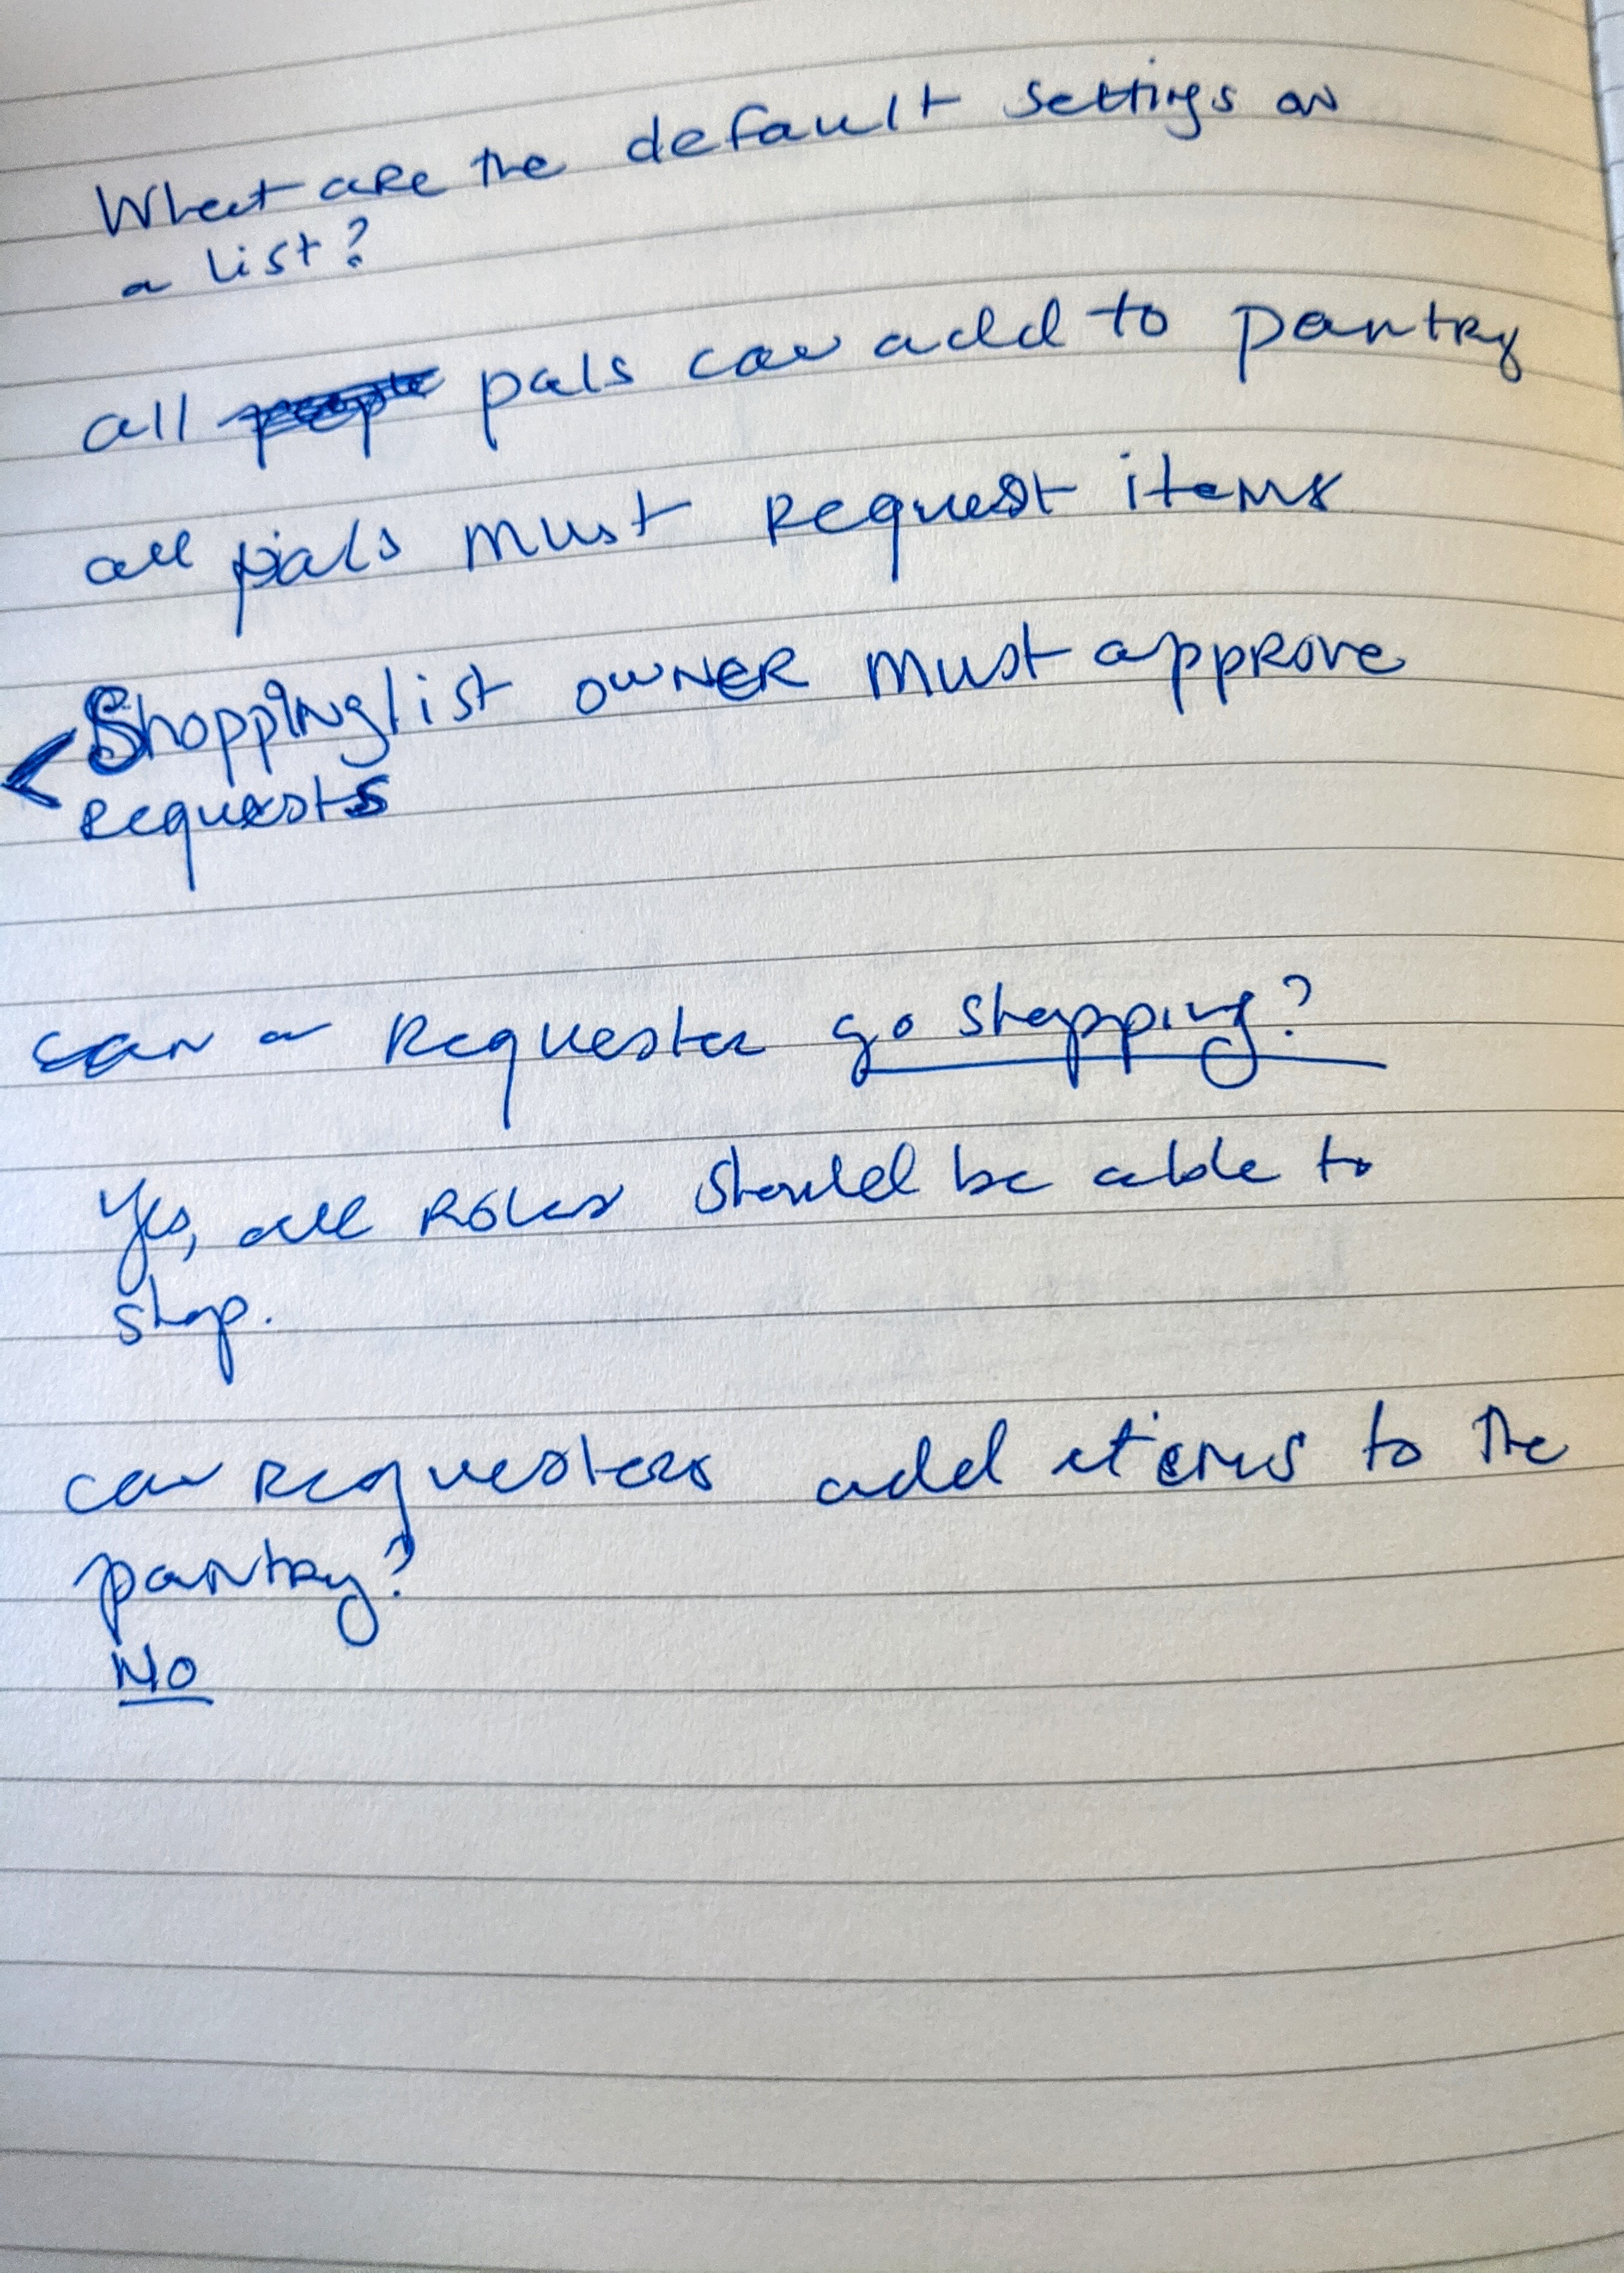 What are the default settings on
a list?
all pals can add to pantry
all pals must request items
Shoppinglist owner must approve
requests
can a Requester go shopping?
Yes, all Roles should be able to
shop.
can requesters add items to the
pantry?
No